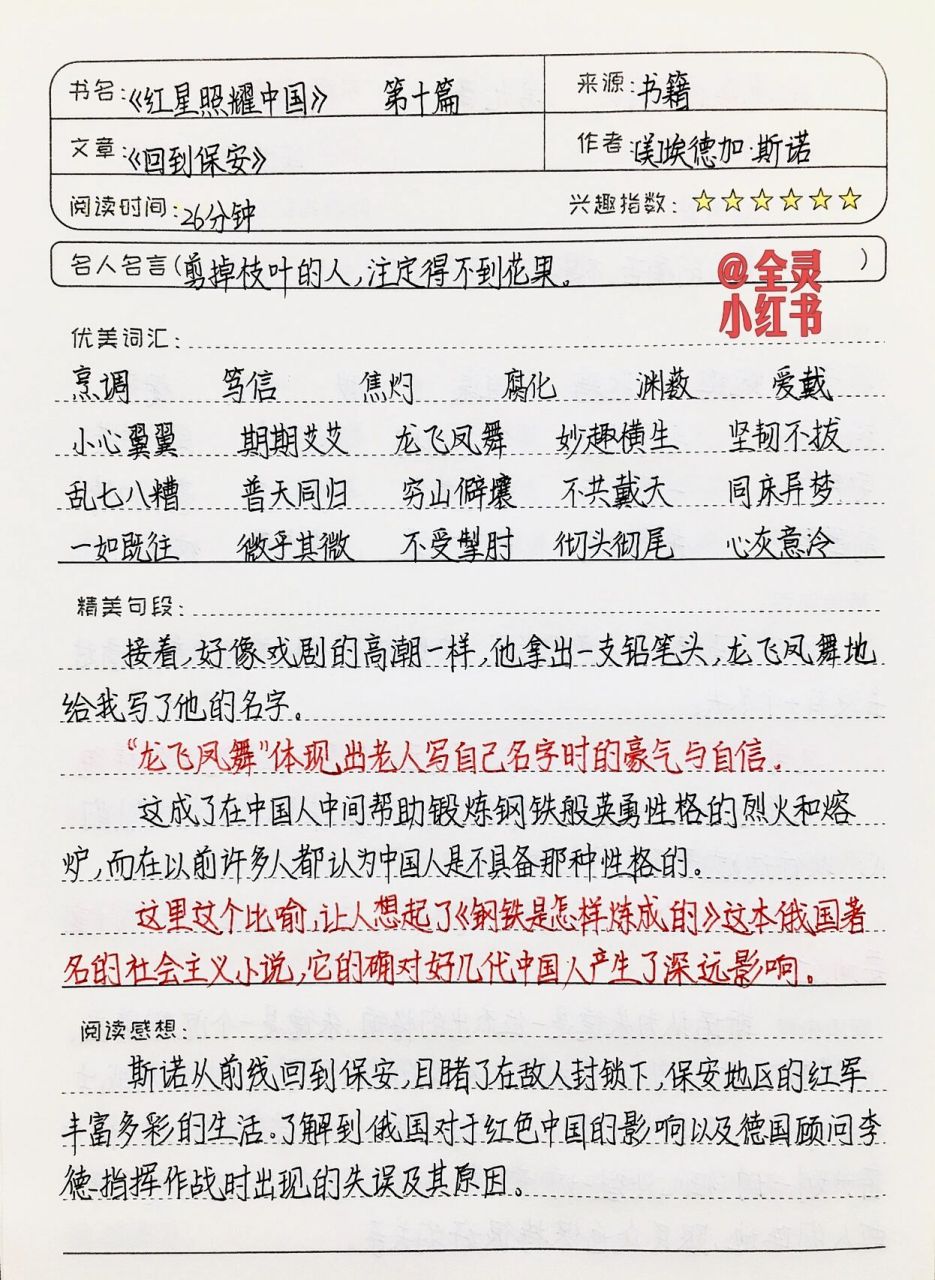 书名:《红星照耀中国》 第十篇 来源:书籍
文章:《回到保安》 作者:[美]埃德加·斯诺
阅读时间:26分钟 兴趣指数:☆☆☆☆☆☆
名人名言(剪掉枝叶的人,注定得不到花果。)
@全灵
小红书
优美词汇:
烹调 笃信 焦灼 腐化 渊薮 爱戴
小心翼翼 期期艾艾 龙飞凤舞 妙趣横生 坚韧不拔
乱七八糟 普天同归 穷山僻壤 不共戴天 同床异梦
一如既往 微乎其微 不受掣肘 彻头彻尾 心灰意冷
精美句段:
接着,好像戏剧的高潮一样,他拿出一支铅笔头,龙飞凤舞地
给我写了他的名字。
“龙飞凤舞”体现出老人写自己名字时的豪气与自信。
这成了在中国人中间帮助锻炼钢铁般英勇性格的烈火和熔
炉,而在以前许多人都认为中国人是不具备那种性格的。
这里这个比喻,让人想起了《钢铁是怎样炼成的》这本俄国著
名的社会主义小说,它的确对好几代中国人产生了深远影响。
阅读感想:
斯诺从前线回到保安,目睹了在敌人封锁下,保安地区的红军
丰富多彩的生活。了解到俄国对于红色中国的影响以及德国顾问李
德指挥作战时出现的失误及其原因。